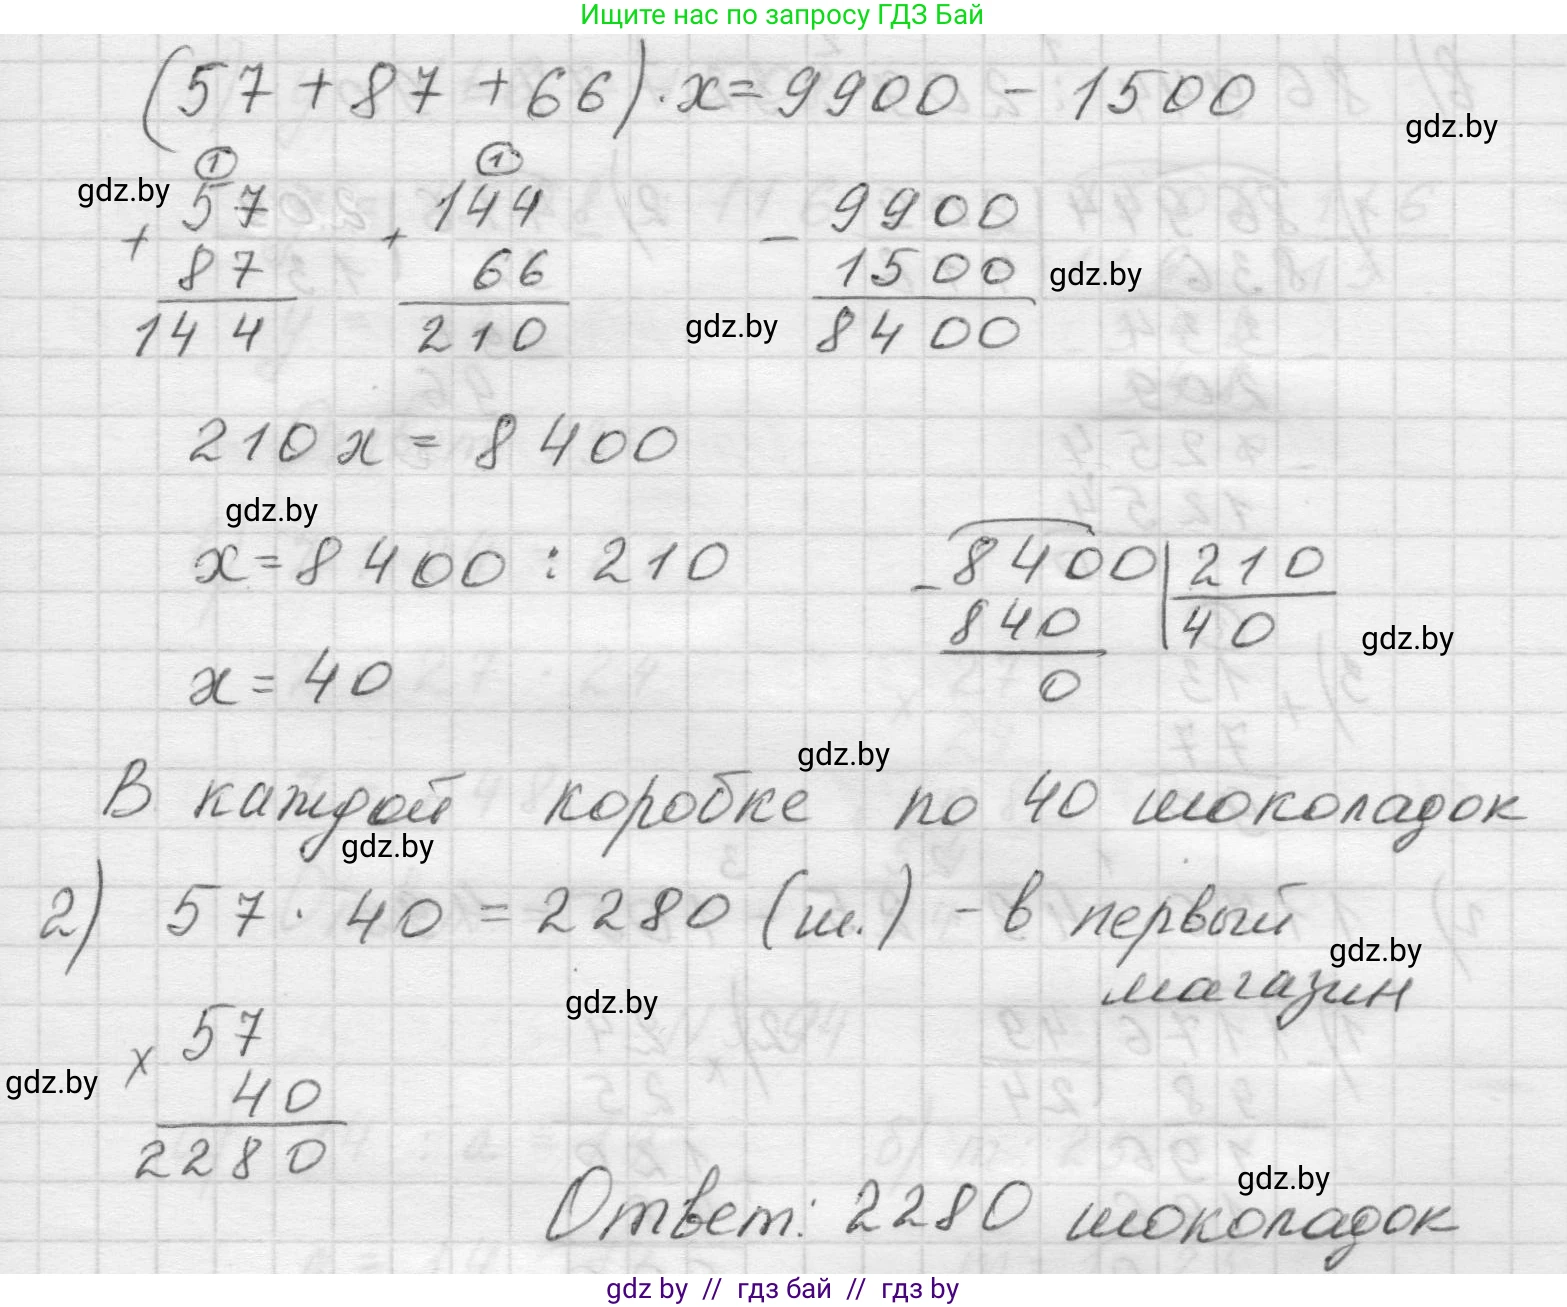 Ищите нас по запросу ГДЗ Бай
(57 + 87 + 66) · x = 9900 - 1500
gdz.by
gdz.by
1 1
+ 57 + 144 - 9900
87 66 1500
gdz.by
144 210 8400
gdz.by
210 x = 8400
gdz.by
x = 8400 : 210
- 8400 | 210
840 40
gdz.by
x = 40
0
gdz.by
В каждой коробке по 40 шоколадок
gdz.by
2) 57 · 40 = 2280 (ш.) - в первый
gdz.by
магазин
gdz.by
x 57
gdz.by
40
2280
gdz.by
Ответ: 2280 шоколадок
gdz by // гдз бай // гдз by